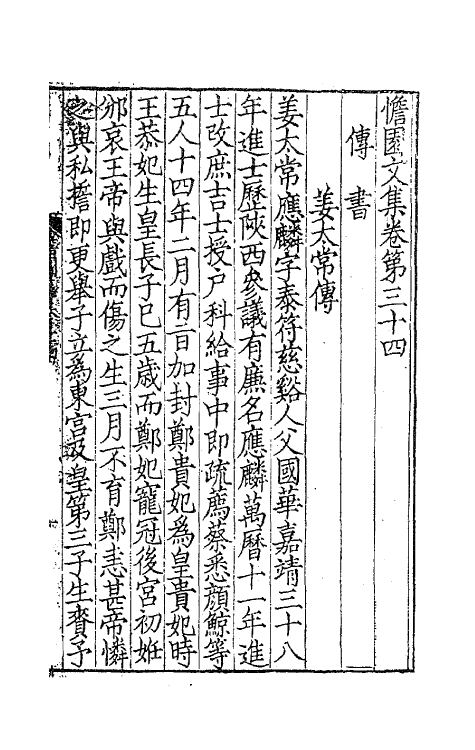 憺園文集卷第三十四
傳 書
姜太常傳
姜太常應麟字泰符慈谿人父國華嘉靖三十八
年進士歷陜西參議有廉名應麟萬曆十一年進
士改庶吉士授户科給事中即疏薦蔡悉顔鯨等
五人十四年二月有旨加封鄭貴妃為皇貴妃時
王恭妃生皇長子巳五歲而鄭妃寵冠後宮初姙
邠哀王帝與戲而傷之生三月不育鄭恚甚帝憐
之與私誓即更舉子立爲東宮及皇第三子生賚予